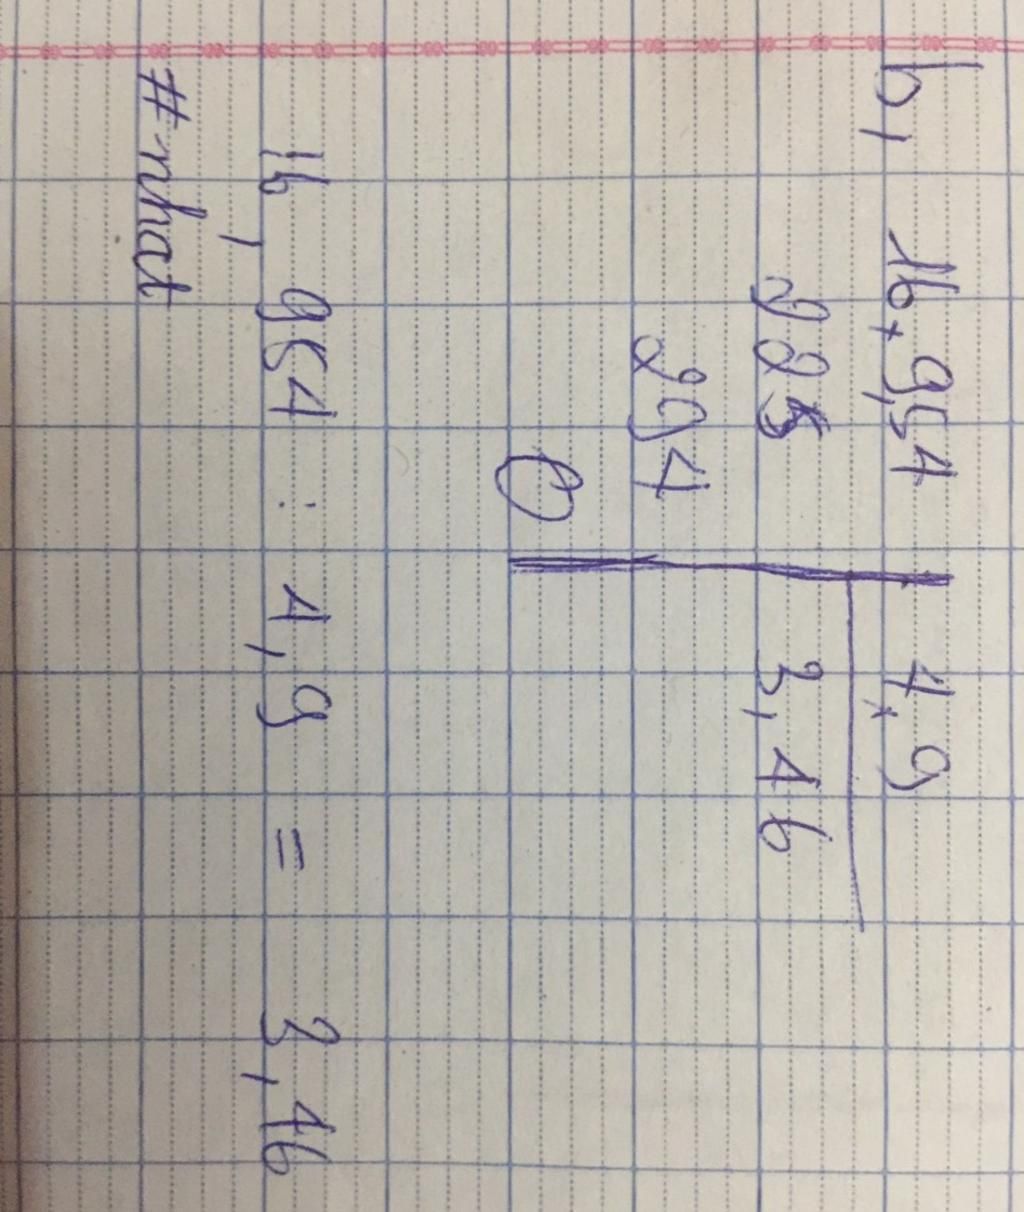 b, 16,9,54 4,9
225 3,46
294
0
16,954 : 4,9 = 3,46
#nhat